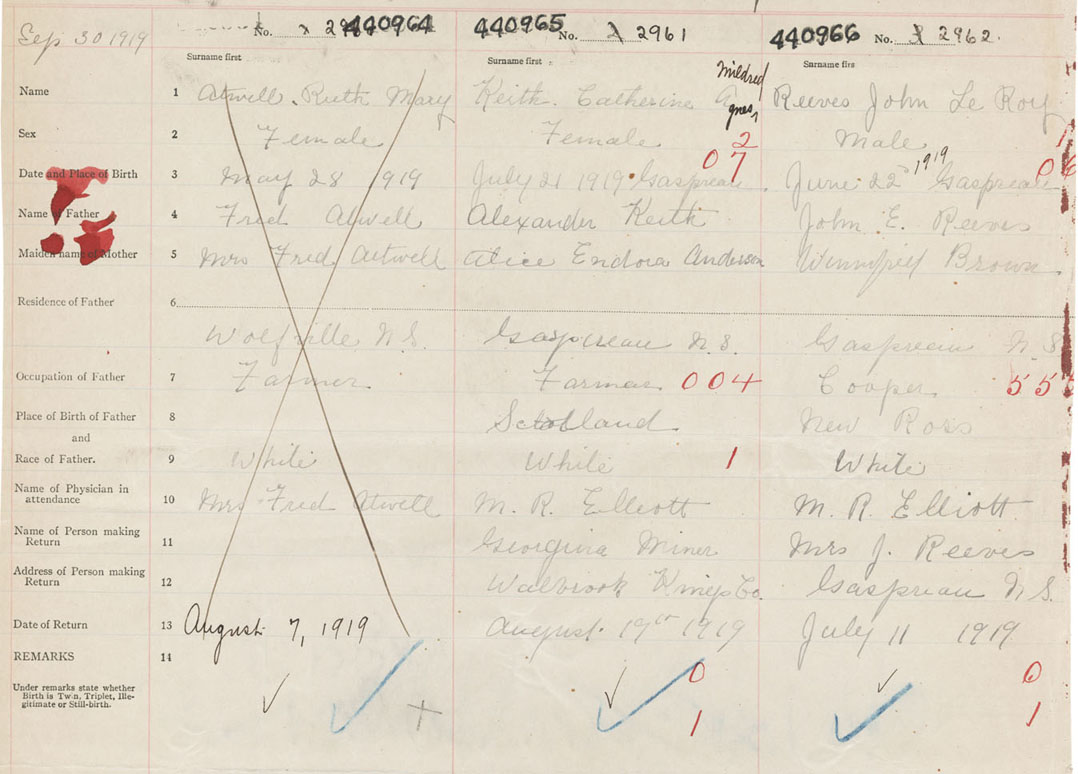 Sep 30 1919
No. 440964
440965 No. 2961
440966 No. 2962.
Surname first Surname first Surname firs
Mildred
Name 1 Atwell. Ruth Mary Keith. Catherine Agnes Reeves John Le Roy
Sex 2 Female Female 2 Male 1
07 1919 06
Date and Place of Birth 3 May 28 1919 July 21 1919 Gaspreau. June 22 Gaspreau
Name of Father 4 Fred Atwell Alexander Keith John E. Reeves
Maiden name of Mother 5 Mrs Fred Atwell Alice Endora Anderson Brown
Residence of Father 6
Wolfville N.S. Gaspreau N.S. Gaspreau N.S
Occupation of Father 7 Farmer Farmer 004 Cooper 555
Place of Birth of Father 8 Scotland New Ross
and
Race of Father. 9 White White 1 White
Name of Physician in
attendance 10 Mrs Fred Atwell M. R. Elliott M. R. Elliott
Name of Person making
Return 11 Georgina Miner Mrs J. Reeves
Address of Person making
Return 12 Walbrook Kings Co. Gaspreau N.S.
Date of Return 13 August 7, 1919 August 19 1919 July 11 1919
REMARKS 14
0 0
Under remarks state whether
Birth is Twin, Triplet, Ille-
gitimate or Still-birth.
1 1